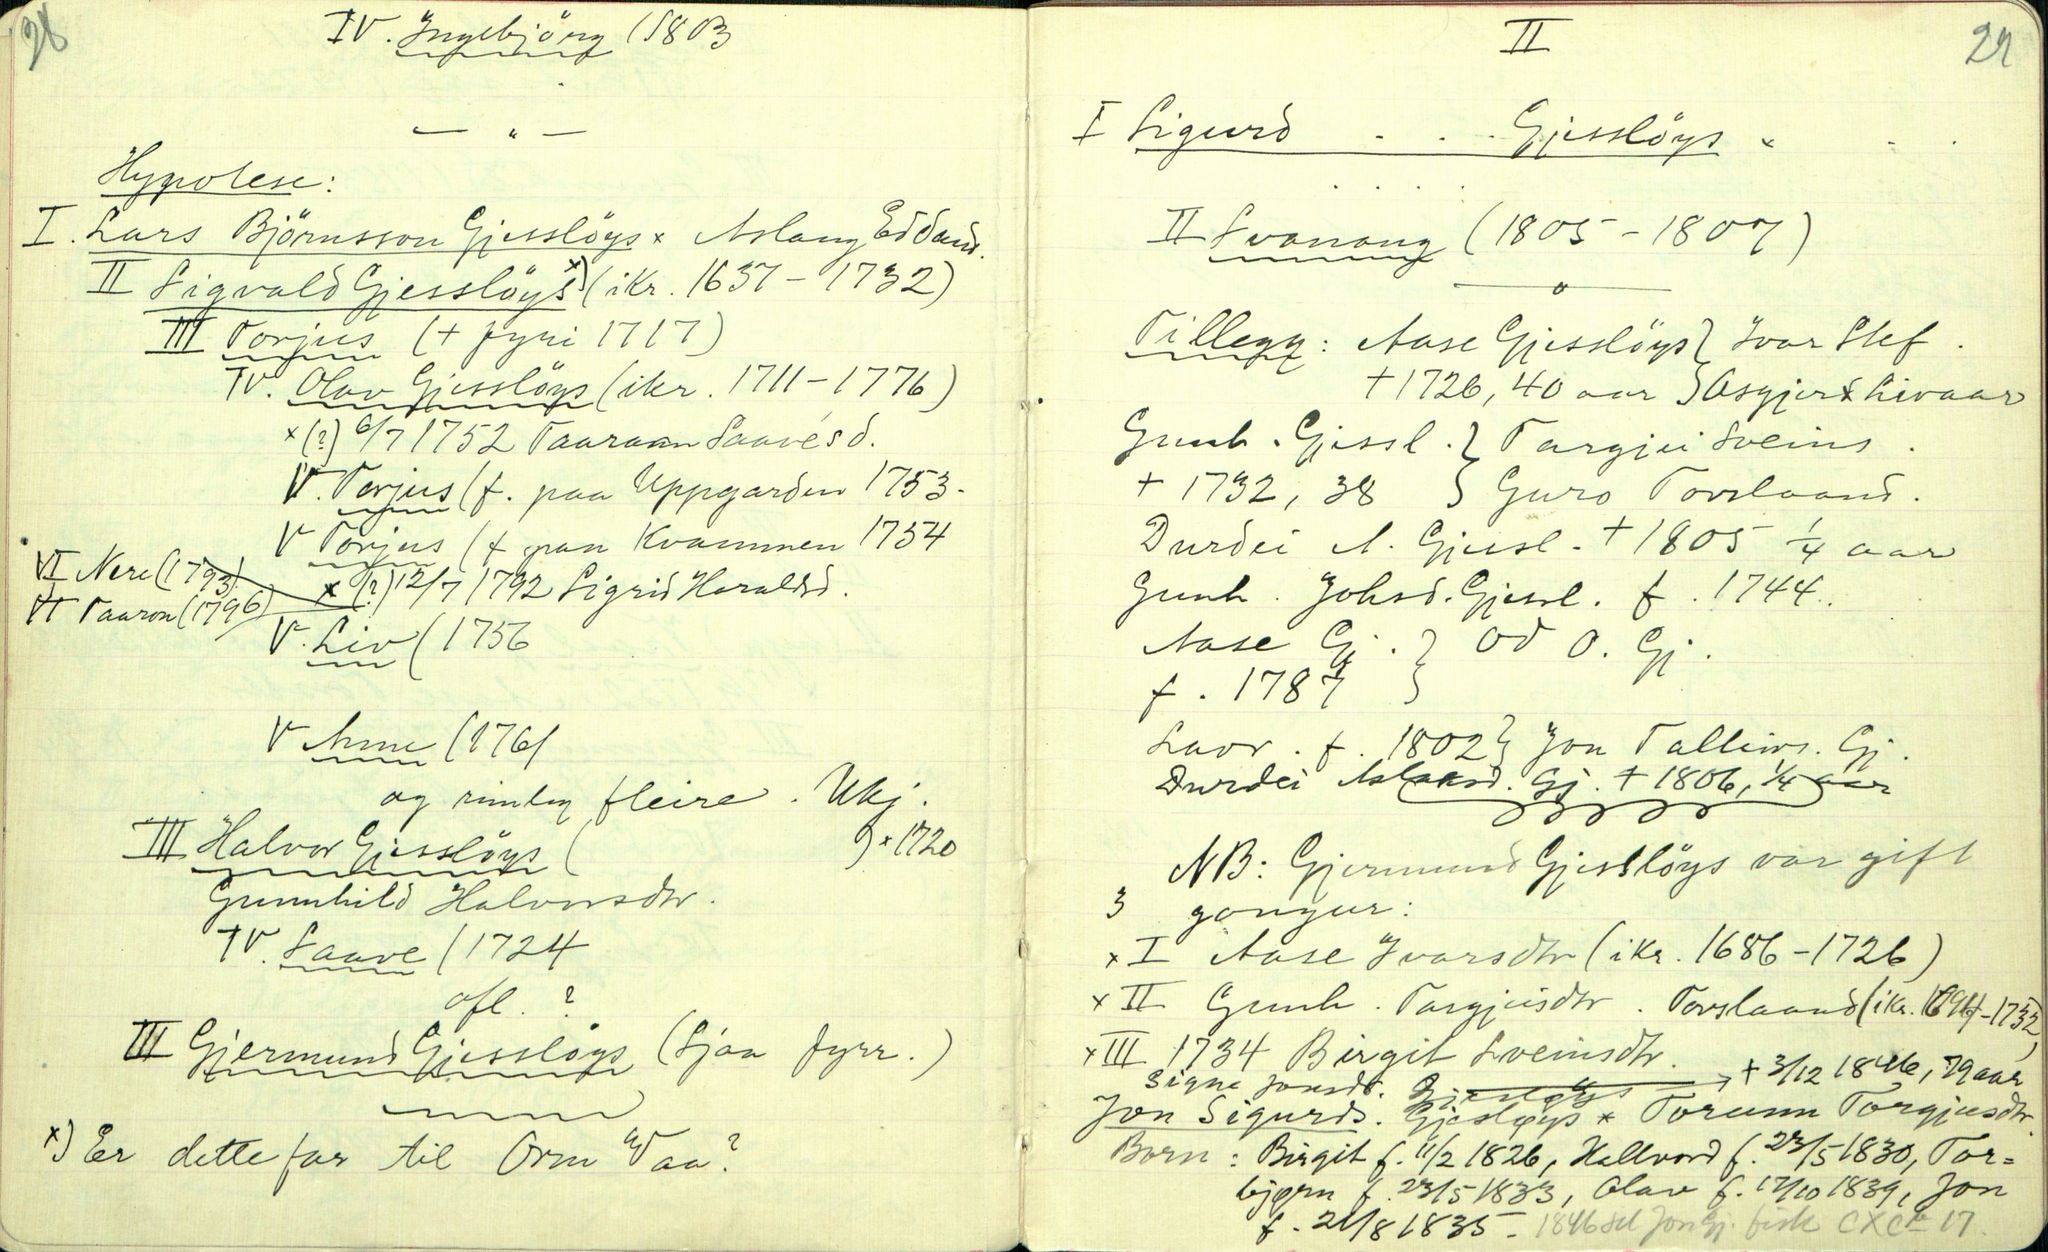 28
IV. Ingebjörg (1803
— " —
Hypotese:
I. Lars Björnsson Gjesslöys x Aslaug Eddand.
II Sigvald Gjesslöys x) (ikr. 1637 - 1732)
III Torjus († fyri 1717)
IV. Olav Gjesslöys (ikr. 1711 - 1776)
x (?) 6/7 1752 Taaraan Saavesd.
V. Torjus (f. paa Uppgarden 1753.
V Torjus (f. paa Kvammen 1754
VI Nere (1793)
x (?) 12/7 1792 Sigrid Haraldsd.
VI Taaron (1796)
V. Liv (1756
V Anne (1761
og rimleg fleire. Ukj.
III Halvor Gjesslöys ( ) x 1720
Gunnhild Halvorsdtr.
IV. Saave (1724
ofl. ?
III Gjermund Gjesslöys (Sjaa fyrr.)
x) Er dette far til Orm Vaa?
II
29
I Sigurd . . . Gjesslöys x . .
. . . .
II Svanaug (1805 - 1807)
Tillegg: Aase Gjesslöys } Ivar Stef.
† 1726, 40 aar } Asgjerd Livaar
Gunh. Gjessl. } Targjei Sveins.
† 1732, 38 } Guro Tovslaand.
Durdei A. Gjessl. † 1805 1/4 aar
Gunh. Johsd. Gjessl. f. 1744.
Aase Gj. } Od O. Gj.
f. 1787 }
Lavr. f. 1802 } Jon Talleivs. Gj.
Durdei Aslaksd. Gj. † 1806, 1/4 aar
NB: Gjermund Gjesslöys var gift
3 gongur:
x I Aase Ivarsdtr (ikr. 1686 - 1726)
x II Gunh. Targjeisdtr. Tovslaand (ikr. 1694 - 1732)
x III 1734 Birgit Sveinsdtr.
Signe Jonsdt. Gjesløys → † 3/12 1846, 79 aar
Jon Sigurds. Gjesløys x Torunn Torgjusdtr.
Born: Birgit f. 11/2 1826, Hallvord f. 23/5 1830, Tor=
bjørn f. 23/5 1833, Olav f. 17/10 1839, Jon
f. 21/8 1835 - 1846 sel Jon Gj. fisk CXC 17.